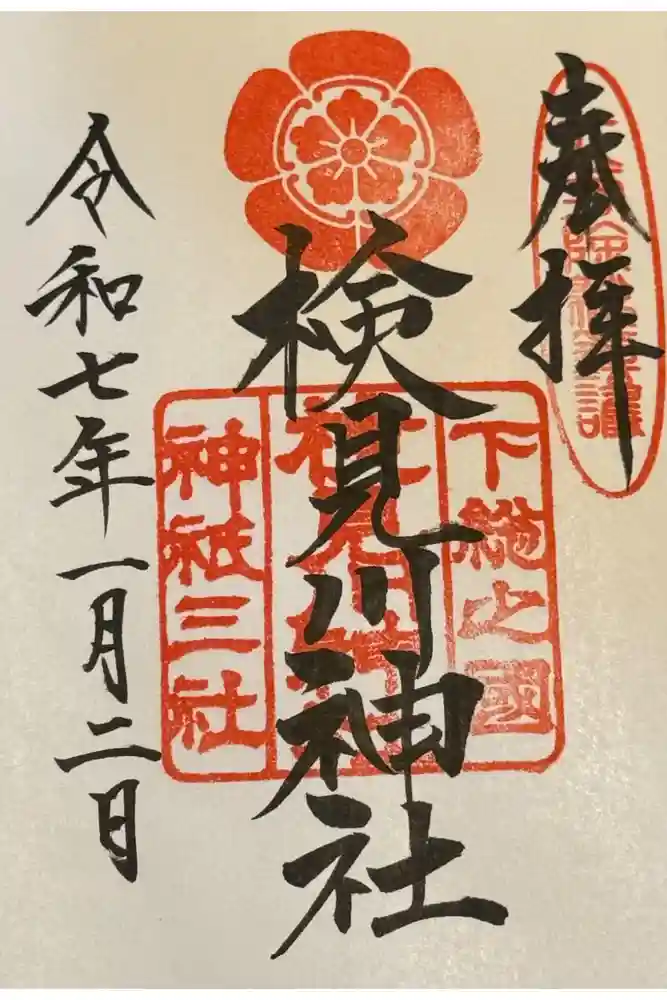 奉拝
検見川神社
令和七年一月二日
下総之國
神祇三社